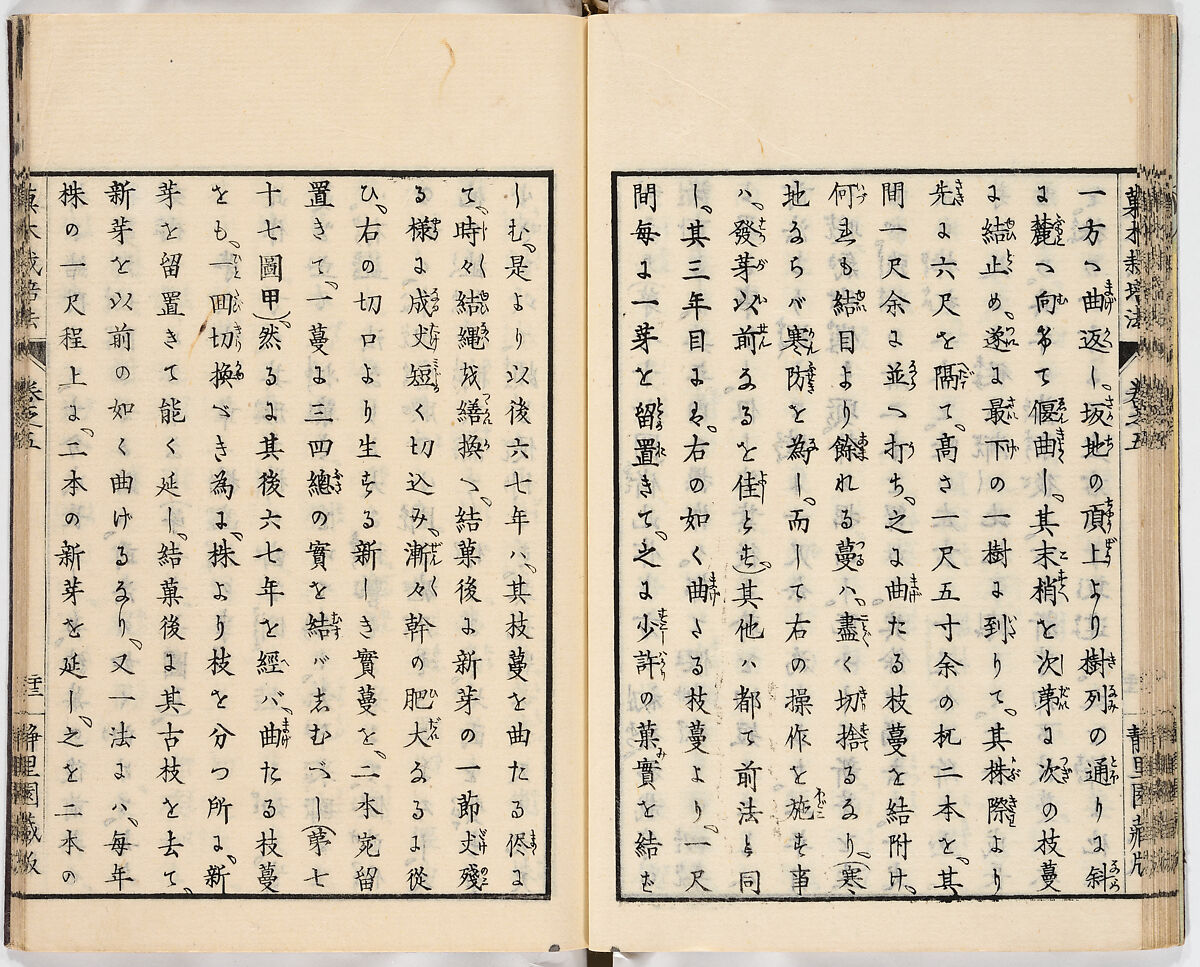 菓木栽培法 卷之五 靜里園藏版
一方へ曲返し、坂地の頂上より樹列の通りに斜
に麓へ向けて偃曲し、其末梢を次第に次の枝蔓
に結止め、遂に最下の一樹に到りて、其株際より
先に六尺を隔て、高さ一尺五寸余の杭二本を、其
間一尺余に並へ打ち、之に曲たる枝蔓を結附け、
何れも結目より餘れる蔓ハ、盡く切捨るなり、(寒
地ならバ寒防を為し、而して右の操作を施す事
ハ、發芽以前なるを佳とす、)其他ハ都て前法と同
し、其三年目にハ、右の如く曲たる枝蔓より、一尺
間每に一芽を留置きて、之に少許の菓實を結ば
しむ、是より以後六七年ハ、其枝蔓を曲たる侭に
て、時々結繩を繕換へ、結菓後に新芽の一節丈殘
る樣に成丈短く切込み、漸々幹の肥大なるに從
ひ、右の切口より生ずる新しき實蔓を、二本宛留
置きて、一蔓に三四總の實を結バしむべし(第七
十七圖甲)然るに其後六七年を經バ、曲たる枝蔓
をも、一囬切換べき為に、株より枝を分つ所に、新
芽を留置きて能く延し、結菓後に其古枝を去て、
新芽を以前の如く曲げるなり、又一法にハ、每年
株の一尺程上に、二本の新芽を延し、之を二本の
菓木栽培法 卷之五 靜里園藏版